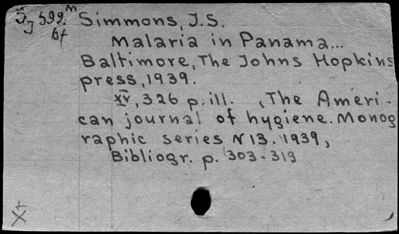 Simmons, J.S.
Malaria in Panama...
Baltimore, The Johns Hopkins
press, 1939.
XV, 326 p. ill. , The Ameri-
can journal of hygiene. Monog
raphic series N 13. 1939,
Bibliogr. p. 303-319